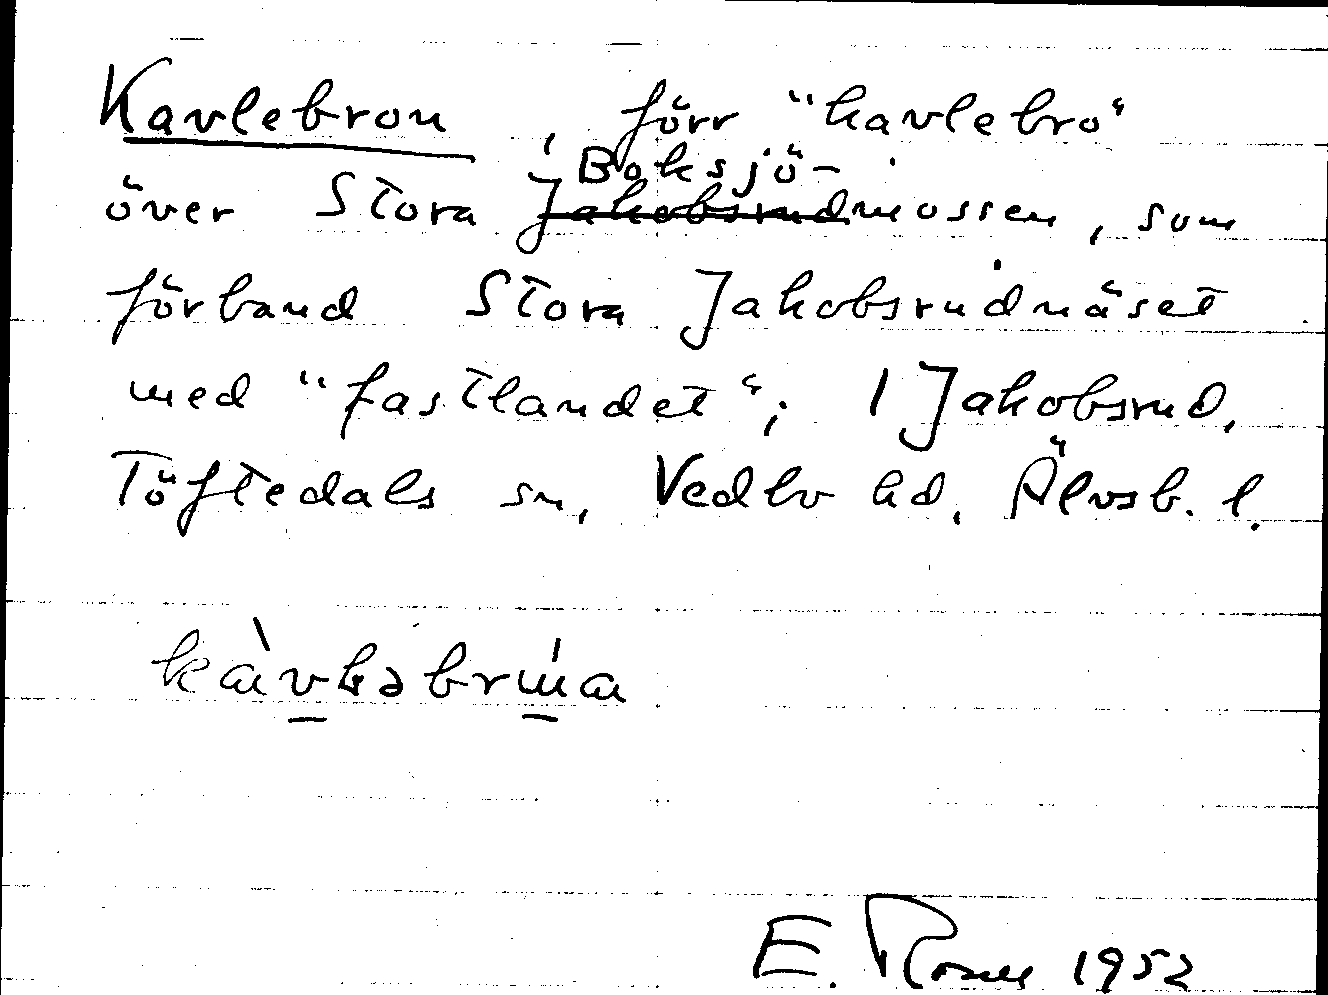 Kavlebron, förr "kavlebro"
Boksjö-
över Stora Jakobsrudmossen, som
förband Stora Jakobsrudnäset
med "fastlandet"; 1 Jakobsrud,
Töftedals sn, Vedbo hd, Älvsb. l.
E. 1952